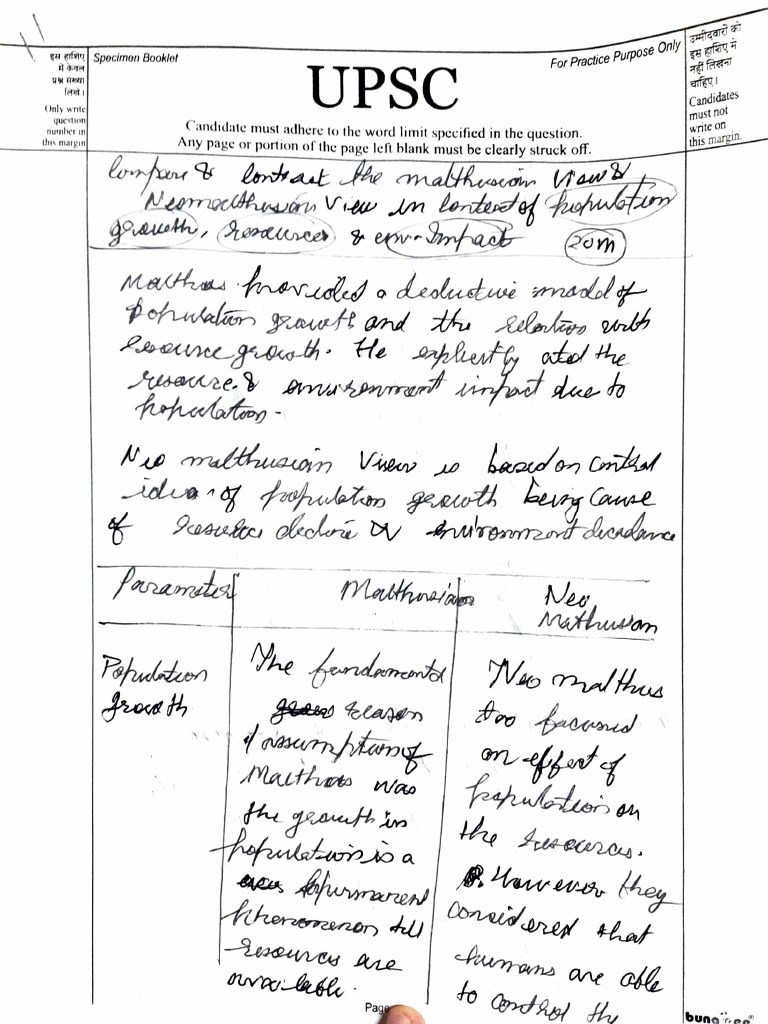 इस हाशिए
में केवल
प्रश्न संख्या
लिखें।
Only write
question
number in
this margin
Specimen Booklet
For Practice Purpose Only
UPSC
Candidate must adhere to the word limit specified in the question.
Any page or portion of the page left blank must be clearly struck off.
उम्मीदवारों को
इस हाशिए में
नहीं लिखना
चाहिए।
Candidates
must not
write on
this margin.
Compare & Contrast the malthusian View &
Neomalthusian View in context of population
growth, resources & env. Impact 20m
Malthus provided a deductive model of
population growth and the relation with
resource growth. He explicitly the
resource & environment impact due to
population.
Neo malthusian View is based on central
idea of population growth being cause
of decline or environment decadance
Parameter
Malthusian
Neo
Mathusian
Population
growth
The fundamental
reason
/ assumption of
Malthus was
the growth in
population is a
permanent
phenomenon till
resources are
available.
Neo malthus
too focused
on effect of
population on
the resources.
However they
considered that
humans are able
to control the
Page